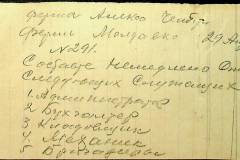 ферма
ферми Молдавко 29
№291.
Составе Немедлено
Следующих Служащих
1. Администратор
2. Бухгалтер
3. Кладовщик
4. Механик
5. Бригадиры